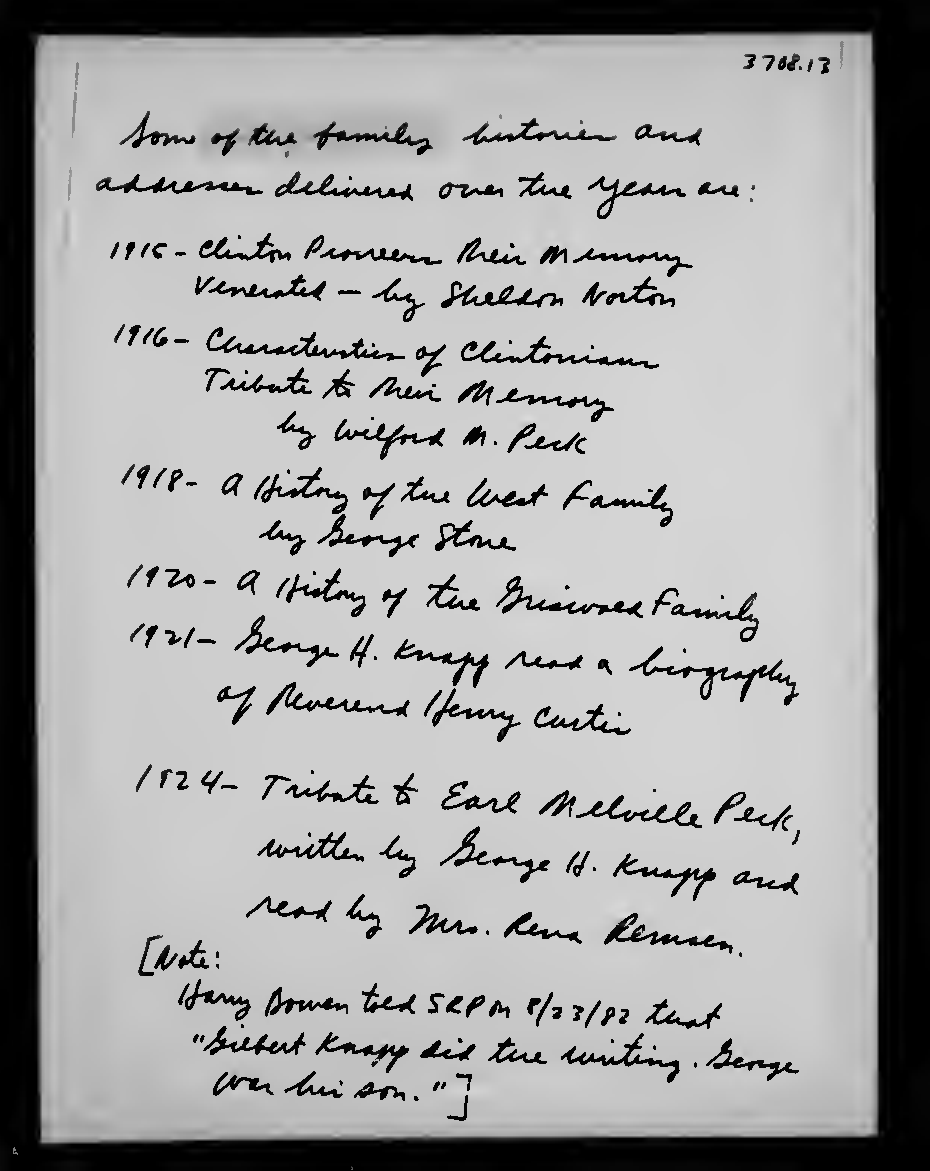 3708.13
Some of the family histories and
addresses delivered over the years are:
1915 - Clinton Pioneers Their Memory
Venerated - by Sheldon Norton
1916 - Characteristics of Clintonians
Tribute to Their Memory
by Wilford M. Peck
1918 - A History of the West Family
by George Stone
1920 - A History of the Griswold Family
1921 - George H. Knapp read a biography
of Reverend Henry Curtis
1924 - Tribute to Earl Melville Peck,
written by George H. Knapp and
read by Mrs. Rena Remsen.
[Note:
Harry Bowen told SRP on 8/23/82 that
"Gilbert Knapp did the writing. George
was his son."]